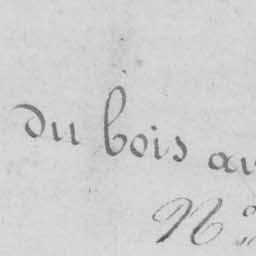 du bois au
N°